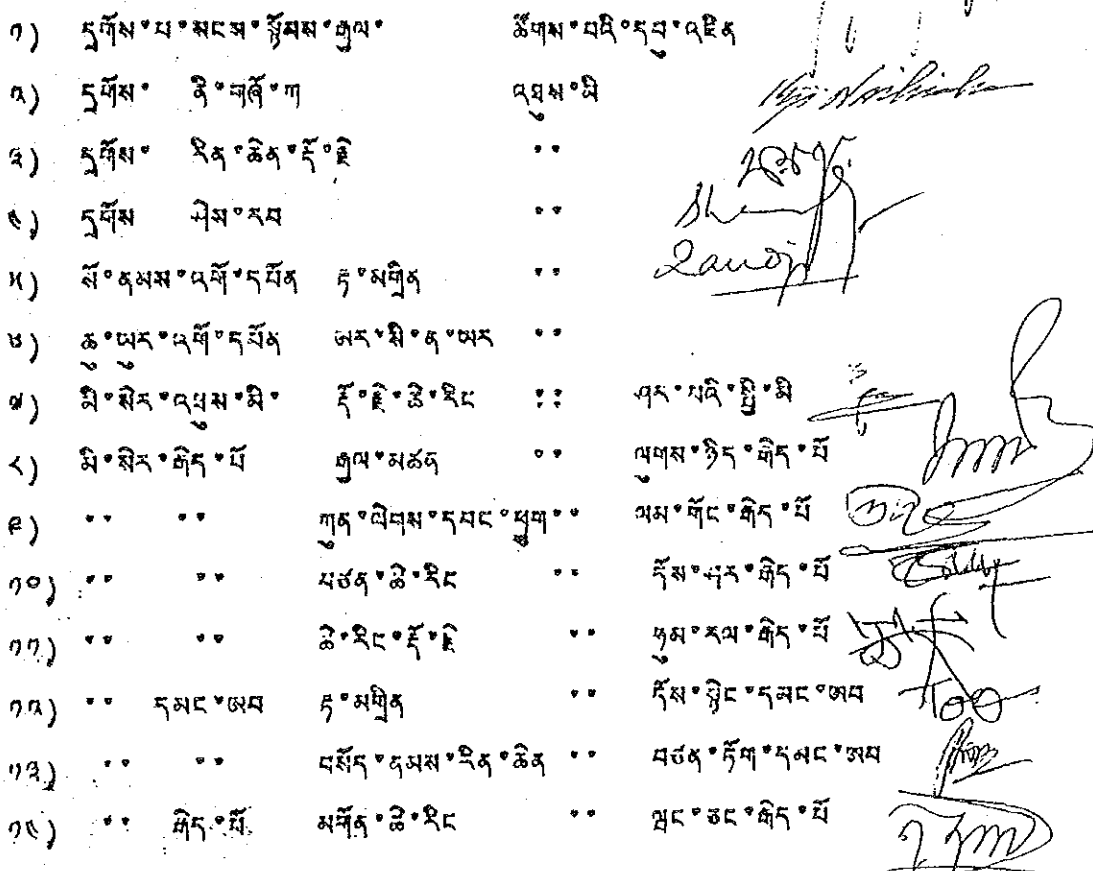 ༡) དྲགོས་པ་སངས་སྙོམས་རྒྱལ་ ཚོགས་པའི་དབུ་འཛིན
༢) དྲགོས་ ནི་གཞོ་ཀ འཐུས་མི
༣) དྲགོས་ རིན་ཆེན་དོ་རྗེ ་་
༤) དྲགོས ཤེས་རབ ་་
༥) སོ་ནམས་འགོ་དཔོན རྟ་མགྲིན ་་
༦) ཆུ་ཡུར་འགོ་དཔོན ཨར་སི་ན་ཨར ་་
༧) མི་སེར་འཐུས་མི་ རྡོ་རྗེ་ཚེ་རིང ་་ ཤར་པའི་སྤྱི་མི
༨) མི་སེར་རྒེད་པོ རྒྱལ་མཚན ་་ ལུགས་ཉིད་རྒེད་པོ
༩) ་་ ་་ ཀུན་ལེགས་དབང་ཕྱུག་་ ལམ་གོང་རྒེད་པོ
༡༠) ་་ ་་ པཙན་ཚེ་རིང ་་ དོས་ཤར་རྒེད་པོ
༡༡) ་་ ་་ ཚེ་རིང་རྡོ་རྗེ ་་ ཧུམ་རལ་རྒེད་པོ
༡༢) ་་ དམང་ཨབ རྟ་མགྲིན ་་ དོས་སྟེང་དམང་ཨབ
༡༣) ་་ ་་ བསོད་ནམས་རིན་ཆེན ་་ བཙན་ཏོག་དམང་ཨབ
༡༤) ་་ རྒེད་པོ མགོན་ཚེ་རིང ་་ ལྷང་ཅང་རྒེད་པོ